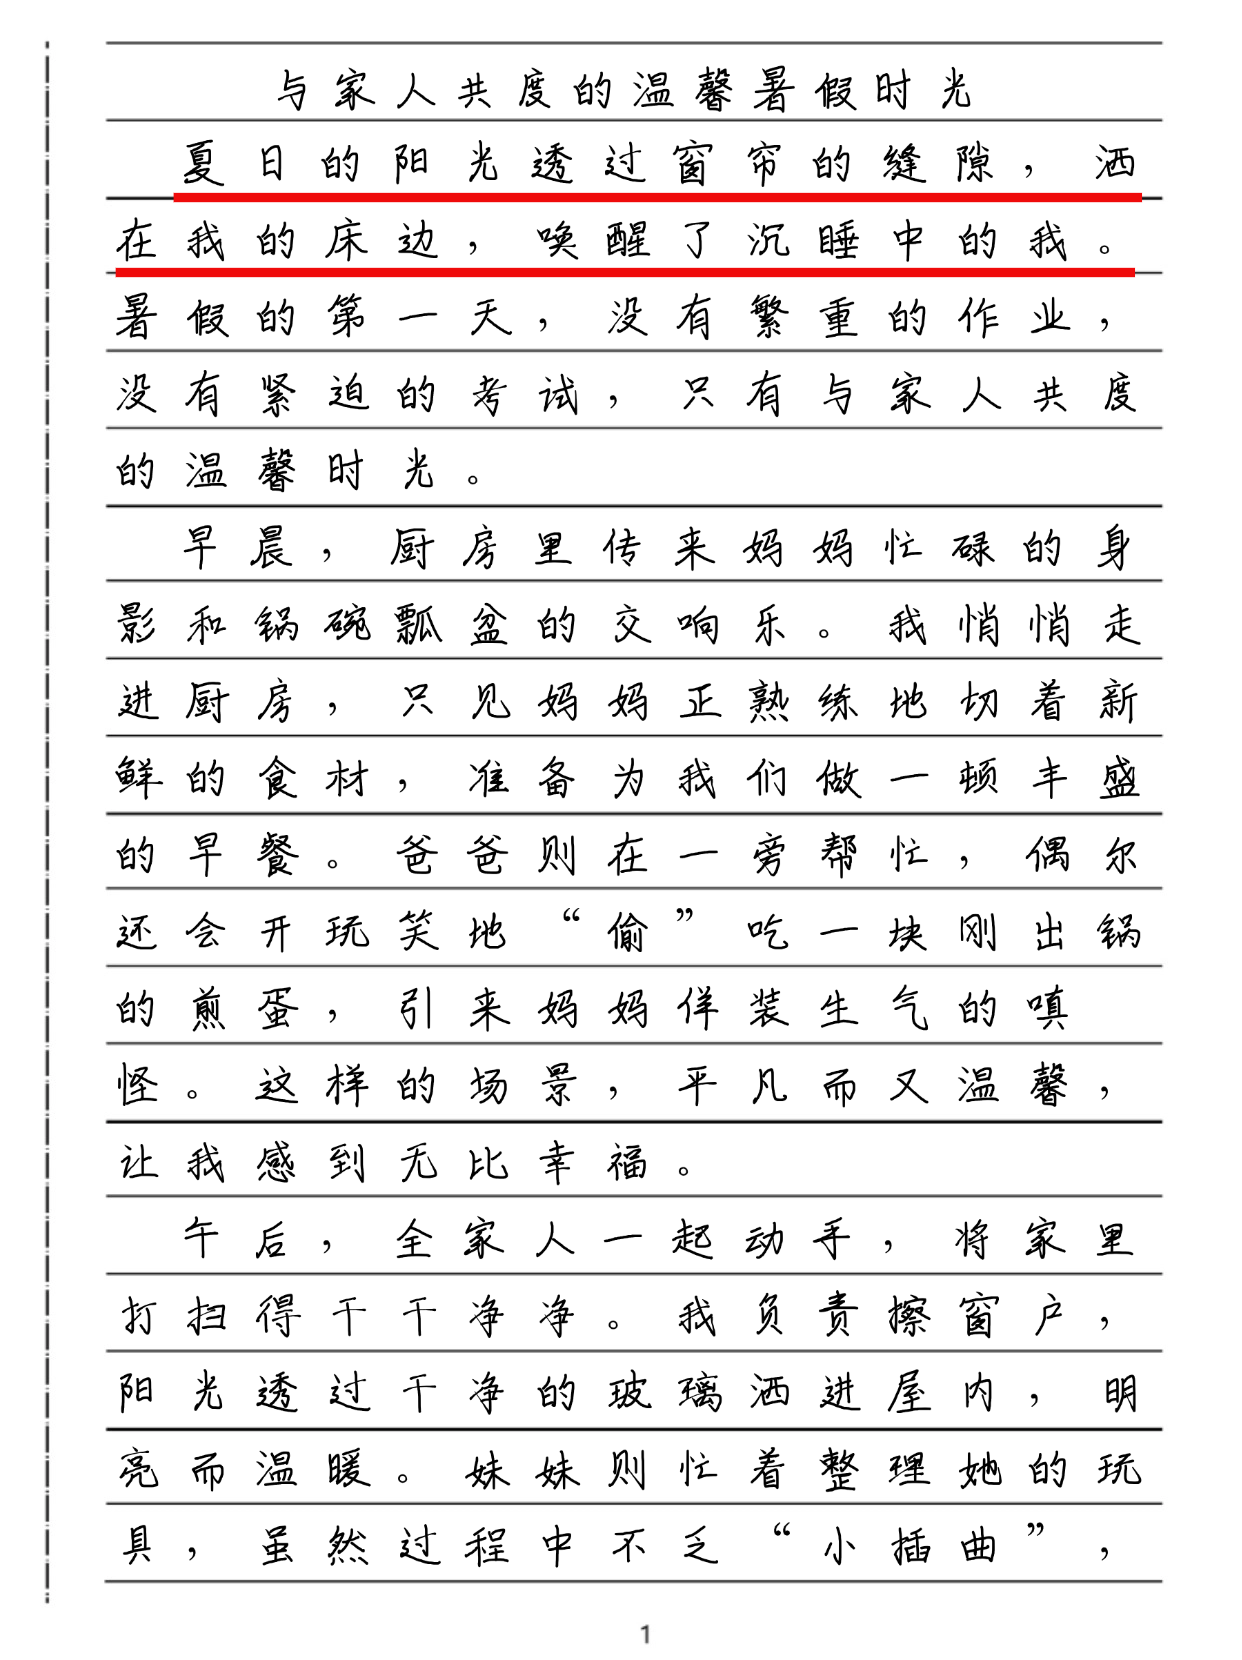 与家人共度的温馨暑假时光
夏日的阳光透过窗帘的缝隙，洒
在我的床边，唤醒了沉睡中的我。
暑假的第一天，没有繁重的作业，
没有紧迫的考试，只有与家人共度
的温馨时光。
早晨，厨房里传来妈妈忙碌的身
影和锅碗瓢盆的交响乐。我悄悄走
进厨房，只见妈妈正熟练地切着新
鲜的食材，准备为我们做一顿丰盛
的早餐。爸爸则在一旁帮忙，偶尔
还会开玩笑地“偷”吃一块刚出锅
的煎蛋，引来妈妈佯装生气的嗔
怪。这样的场景，平凡而又温馨，
让我感到无比幸福。
午后，全家人一起动手，将家里
打扫得干干净净。我负责擦窗户，
阳光透过干净的玻璃洒进屋内，明
亮而温暖。妹妹则忙着整理她的玩
具，虽然过程中不乏“小插曲”，
1